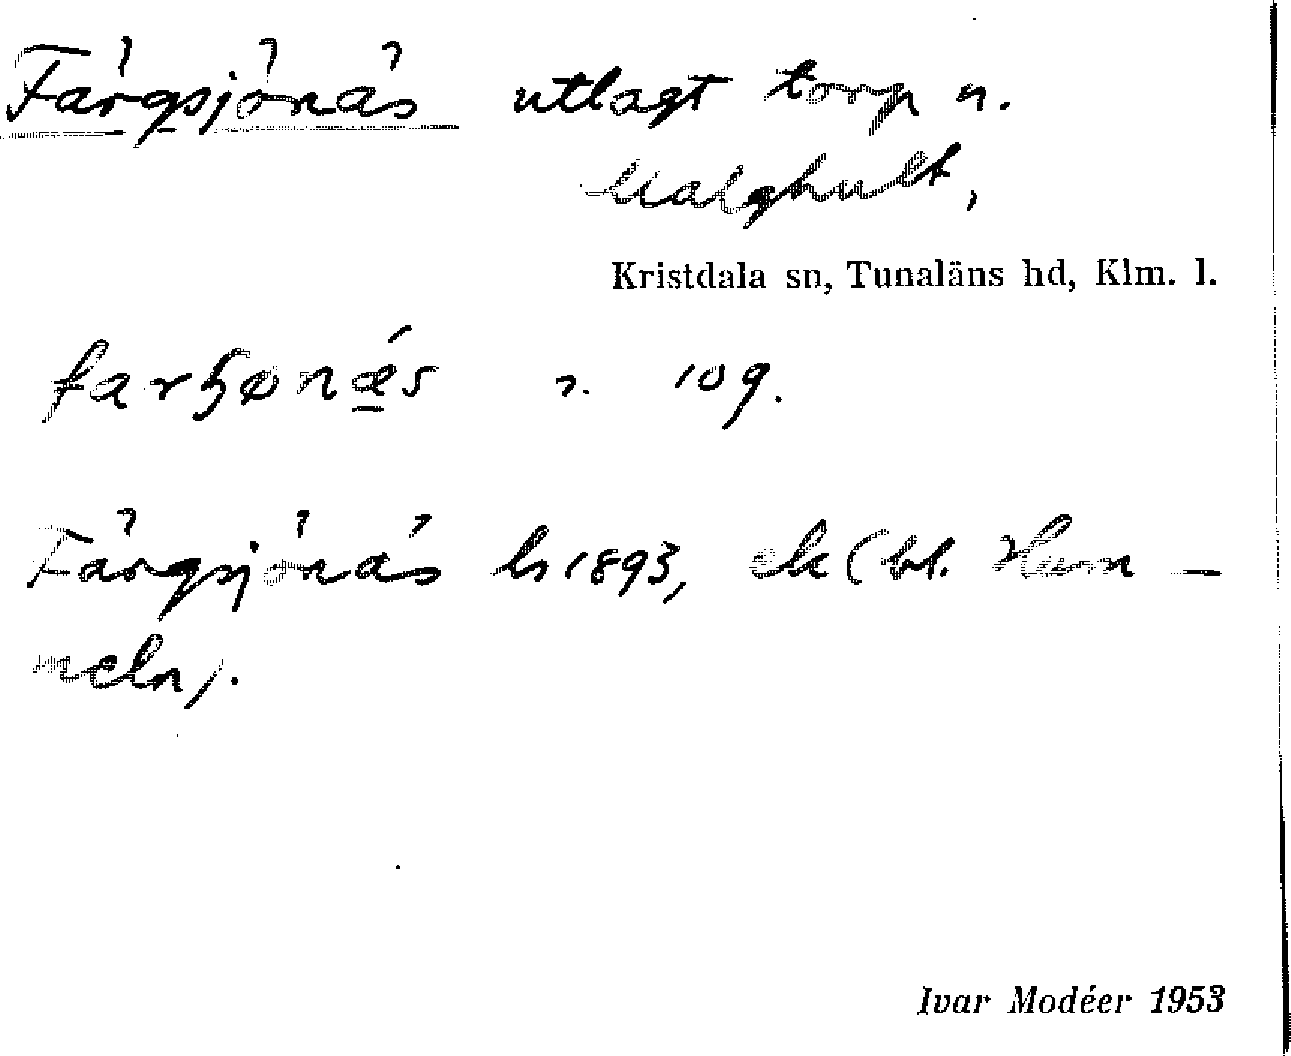 Färgsjönäs utlagt torp u.
Kalghult,
Kristdala sn, Tunaläns hd, Klm. l.
farɧønæ̲´s n. 109.
Färgsjönäs hs 1893, ek (bl. Ham-
meln).
Ivar Modéer 1953